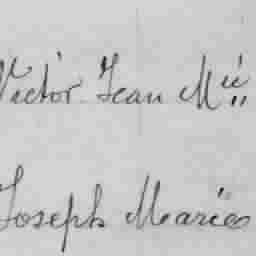 Victor Jean M.ie
Joseph Marie